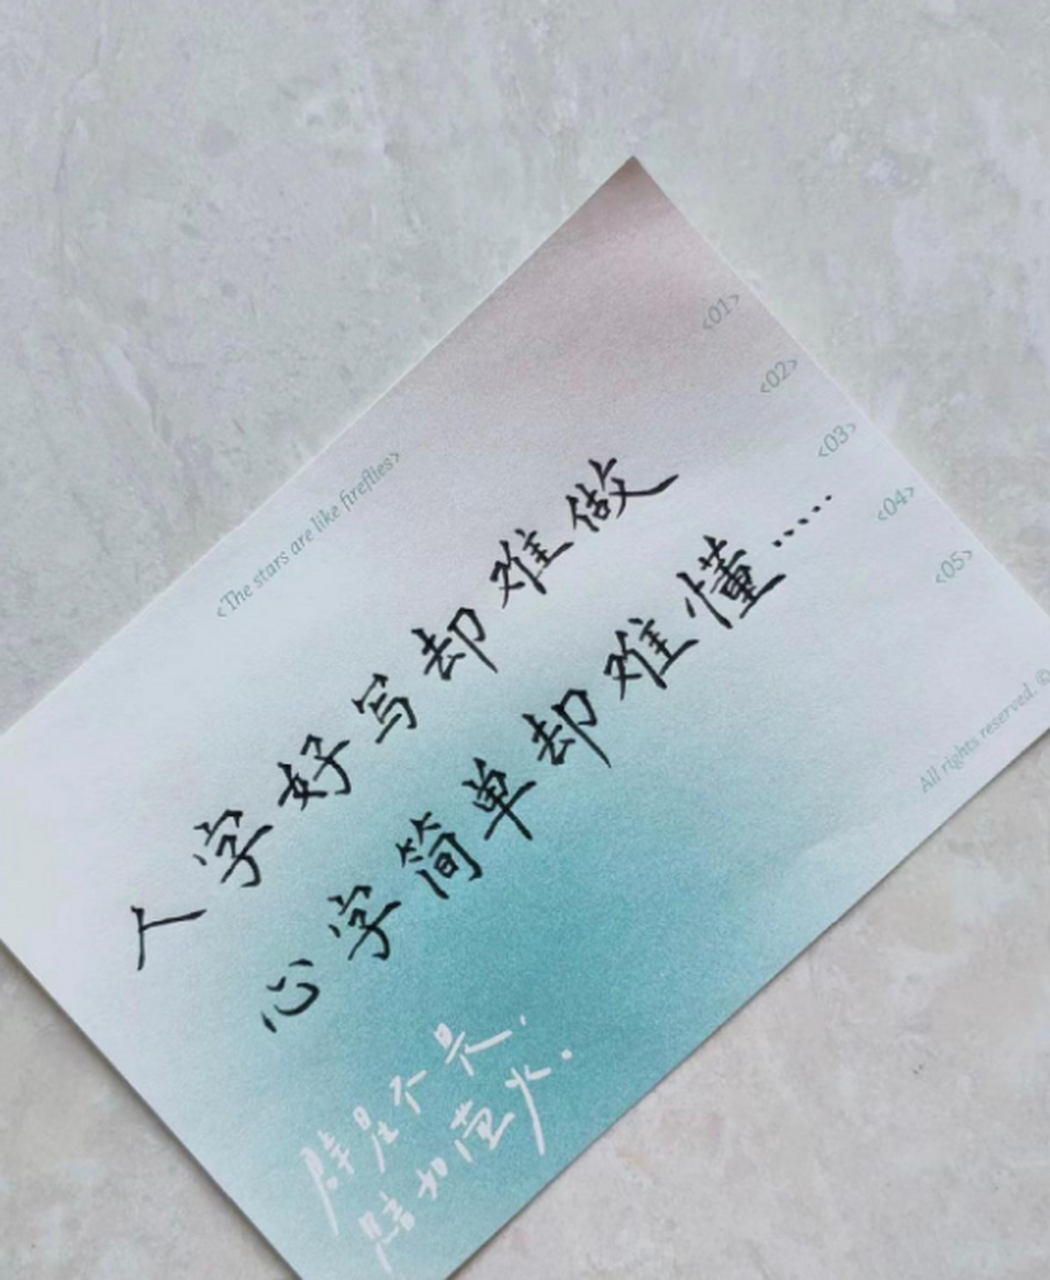 <The stars are like fireflies>
<01>
<02>
<03>
<04>
<05>
人字好写却难做
心字简单却难懂……
群星不
如萤火.
All rights reserved. ©